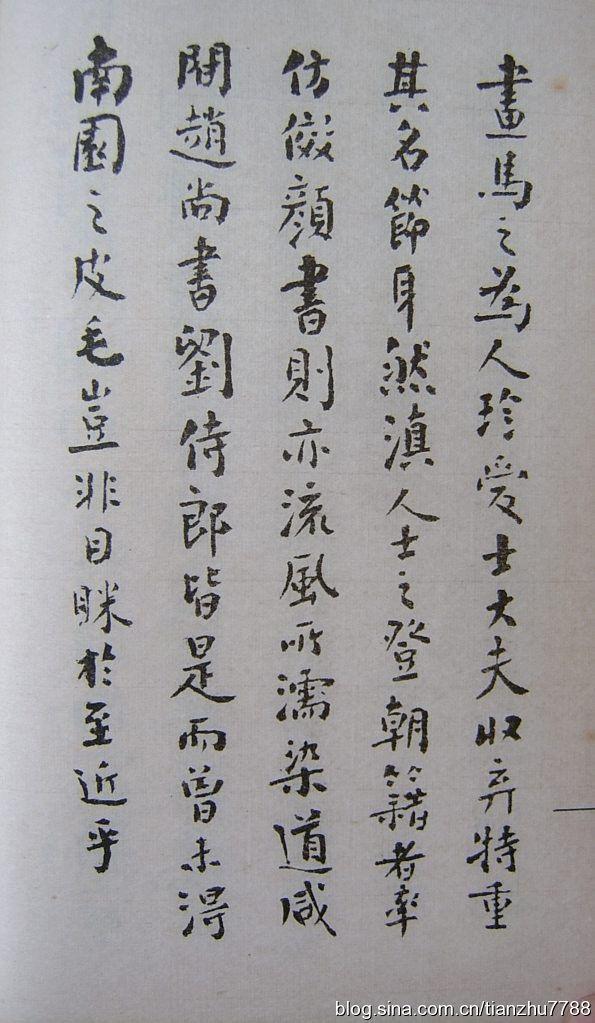 畫馬之為人珍愛士大夫收弆特重
其名節耳然滇人士之登朝籍者率
仿傚顏書則亦流風所濡染道咸
間趙尚書劉侍郎皆是而曾未得
南園之皮毛豈非目眯於至近乎
blog.sina.com.cn/tianzhu7788